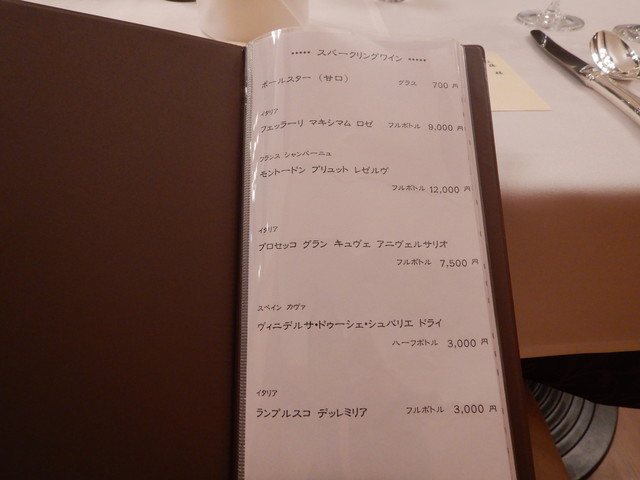 ••••• スパークリングワイン •••••
ポールスター (甘口) グラス 700 円
イタリア
フェッラーリ マキシマム ロゼ フルボトル 9,000 円
フランス シャンパーニュ
モントードン ブリュット レゼルヴ
フルボトル 12,000 円
イタリア
プロセッコ グラン キュヴェ アニヴェルサリオ
フルボトル 7,500 円
スペイン カヴァ
ヴィニデルサ・ドゥーシェ・シュバリエ ドライ
ハーフボトル 3,000 円
イタリア
ランブルスコ デッレミリア フルボトル 3,000 円